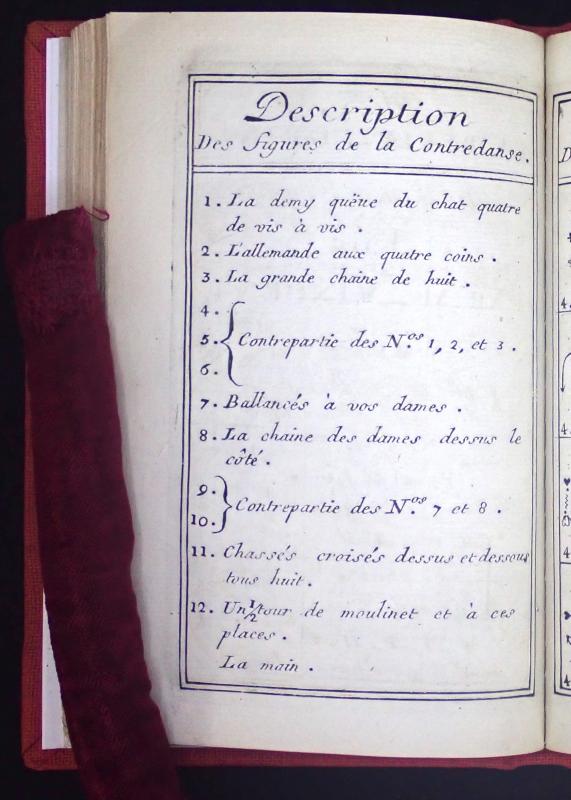 Description
Des figures de la Contredanse.
1. La demy quëue du chat quatre
de vis à vis.
2. L'allemande aux quatre coins.
3. La grande chaine de huit.
4.
5. Contrepartie des N.os 1, 2, et 3.
6.
7. Ballancés à vos dames.
8. La chaine des dames dessus le
côté.
9.
10. Contrepartie des N.os 7 et 8.
11. Chassés croisés dessus et dessous
tous huit.
12. Un 1/2 tour de moulinet et à ces
places.
La main.